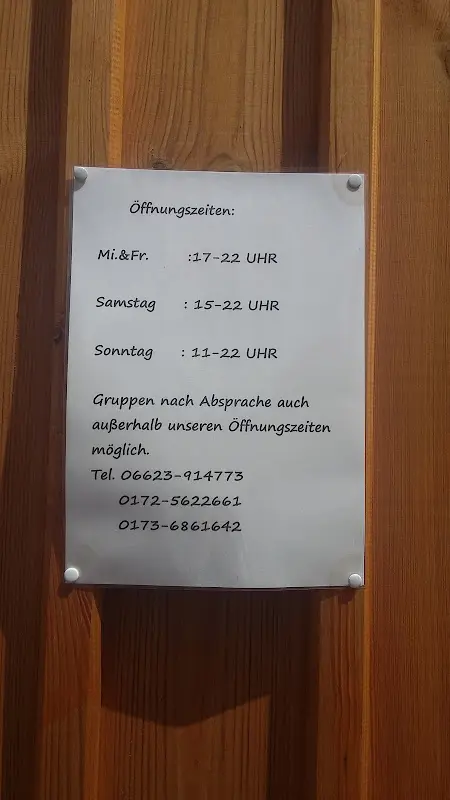 Öffnungszeiten:
Mi.&Fr. :17-22 UHR
Samstag : 15-22 UHR
Sonntag : 11-22 UHR
Gruppen nach Absprache auch
außerhalb unseren Öffnungszeiten
möglich.
Tel. 06623-914773
0172-5622661
0173-6861642